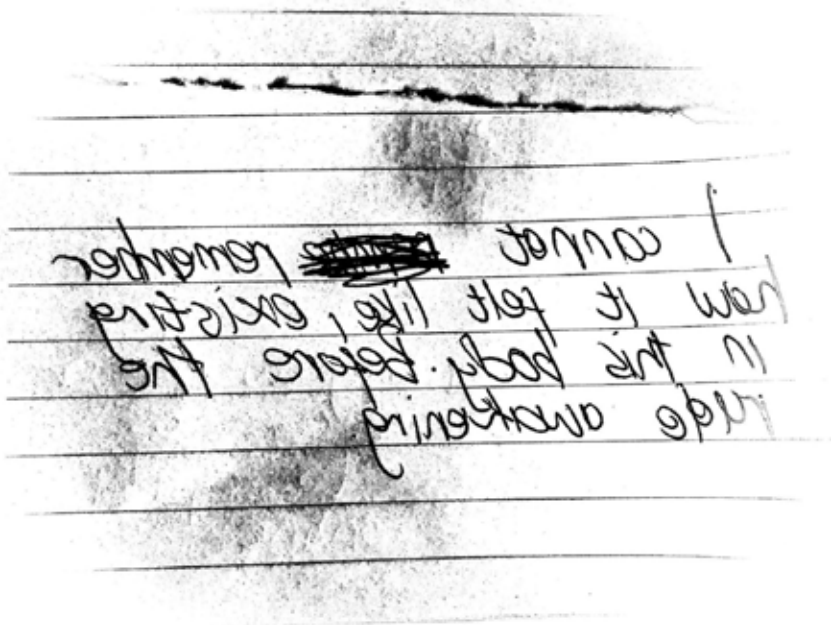 I cannot remember
how it felt like, existing
in this body. before the
rude awakening